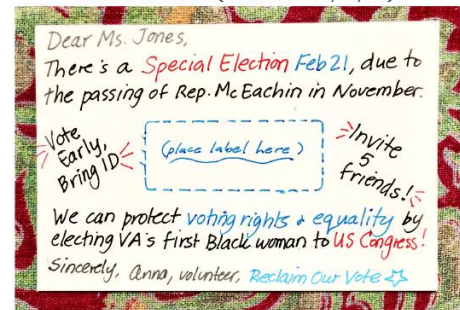 Dear Ms. Jones,
There's a Special Election Feb 21, due to
the passing of Rep. McEachin in November.
Vote
Early,
Bring ID
(place label here)
Invite
5
friends!
We can protect voting rights & equality by
electing VA's first Black woman to US Congress!
Sincerely, Anna, volunteer, Reclaim Our Vote